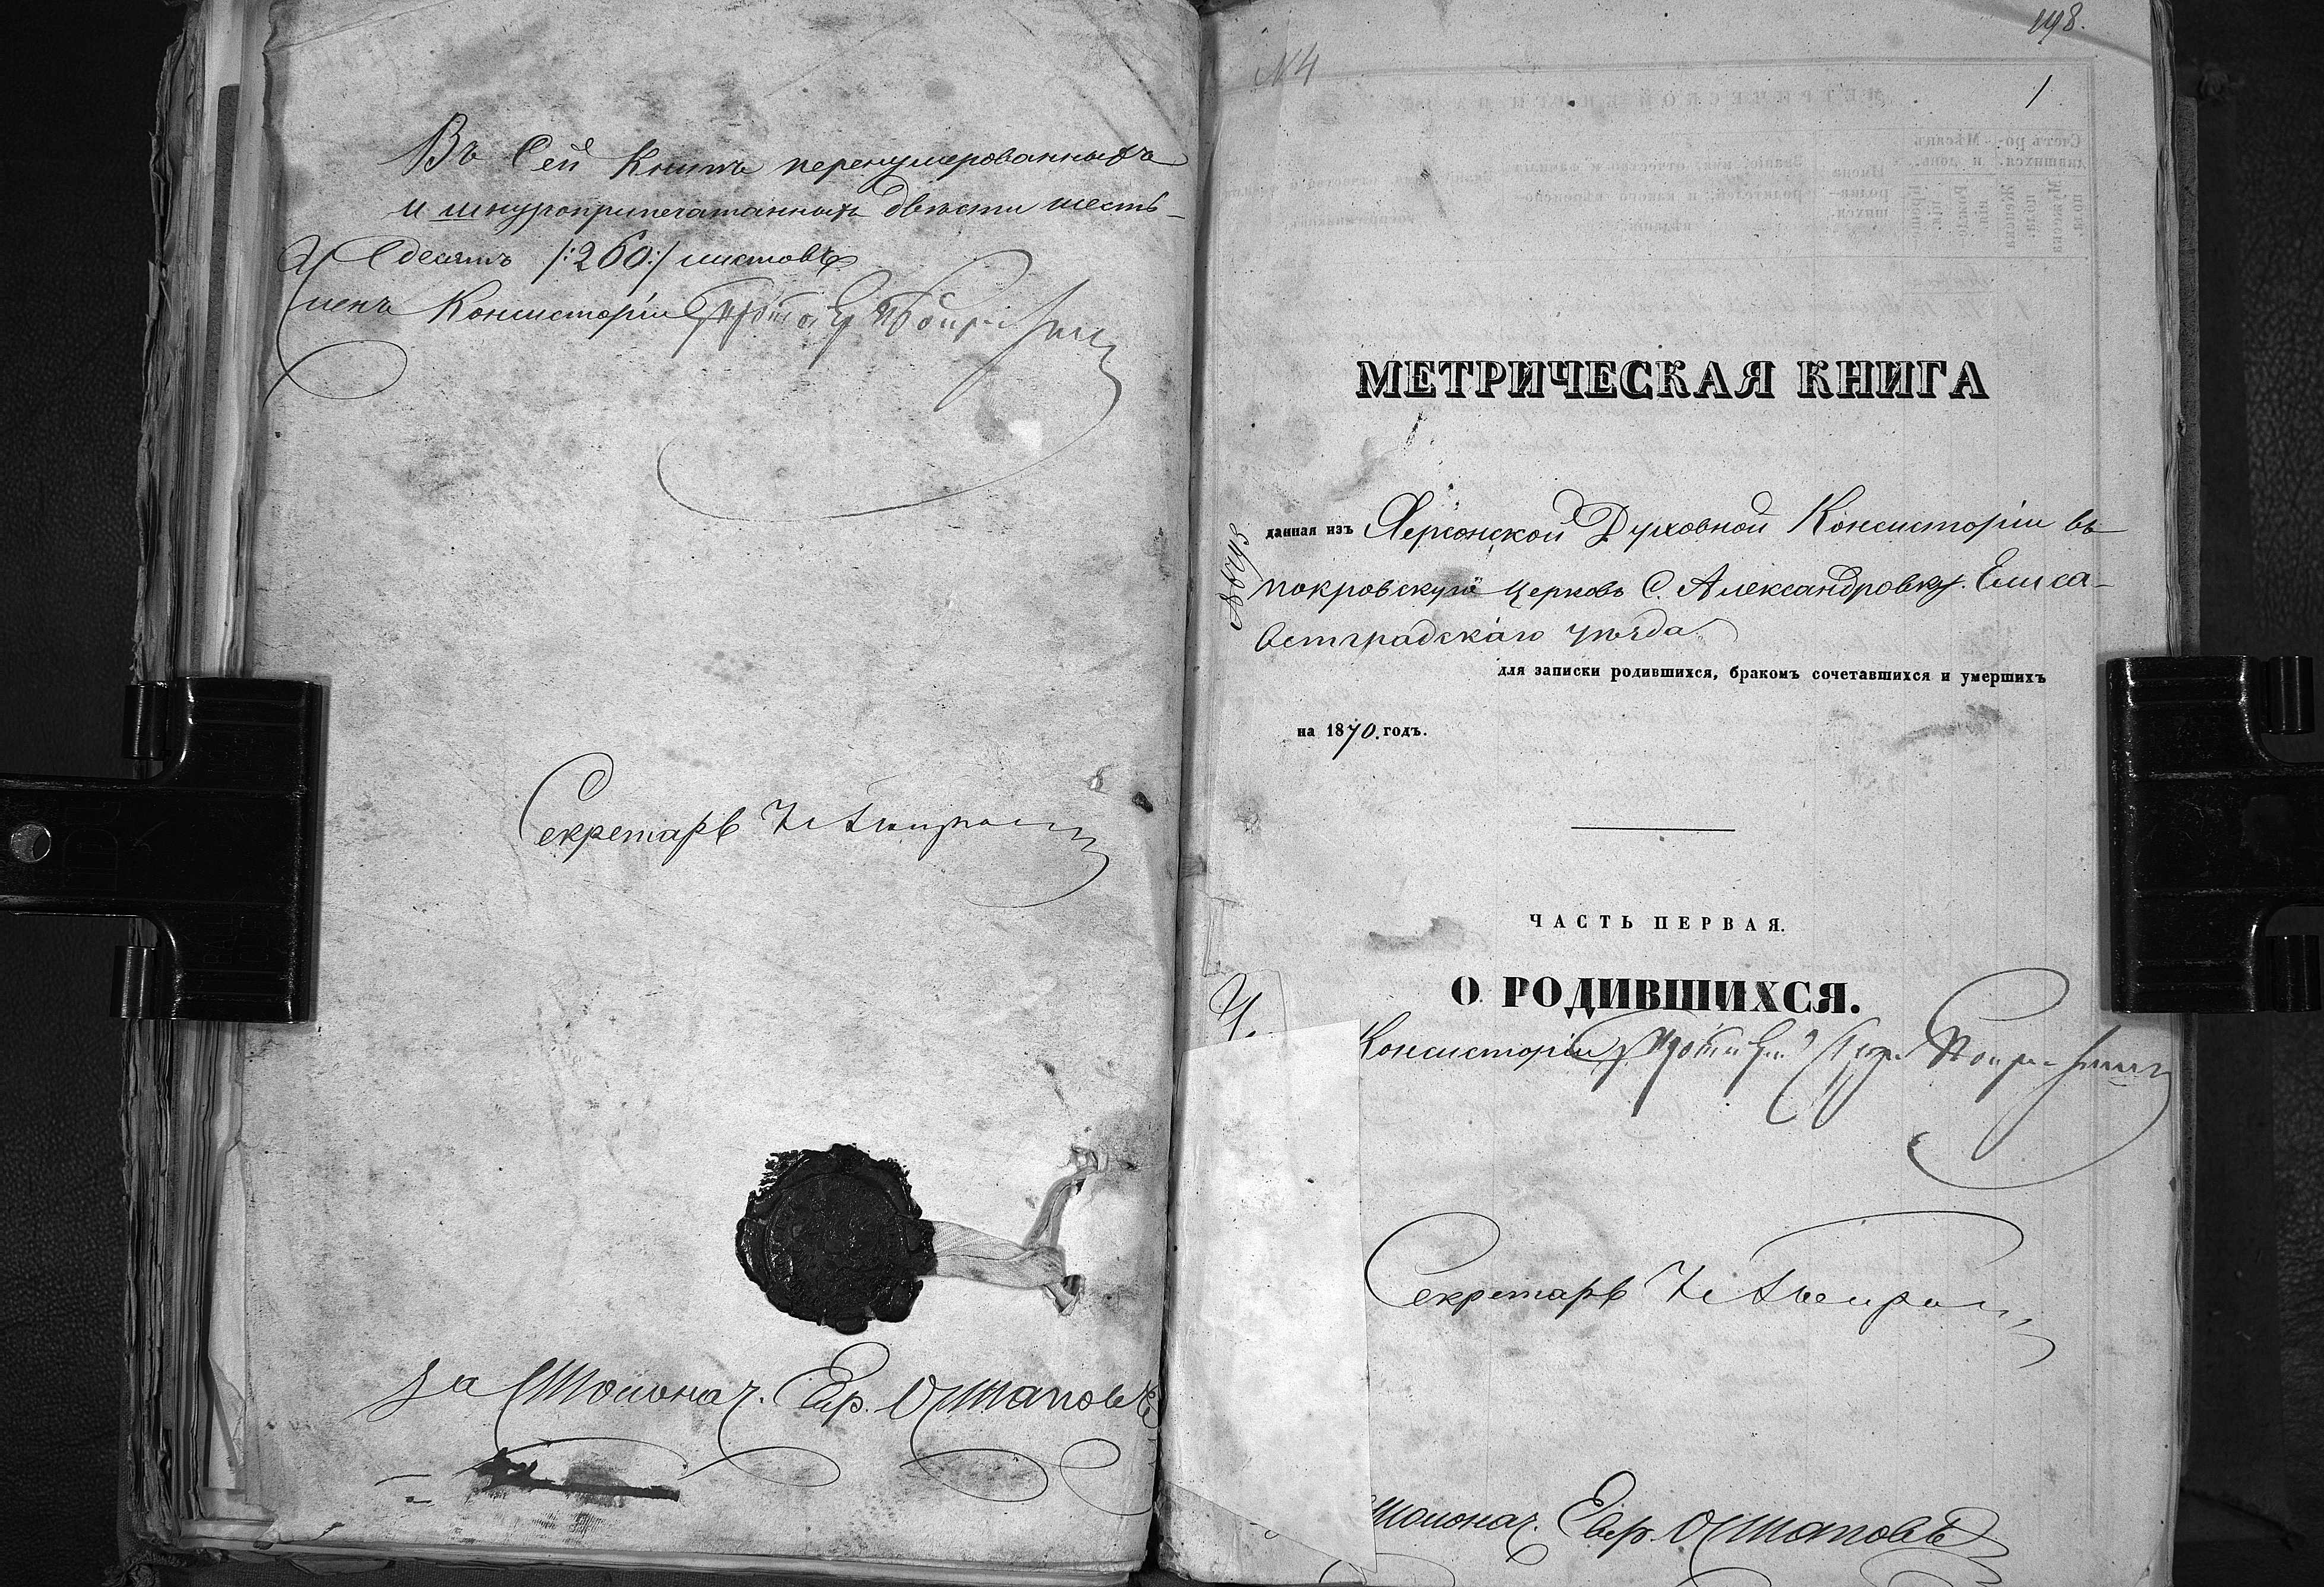 Въ Сей Книгѣ перенумерованныхъ
и шнуроприпечатанныхъ двѣсти шесть-
десятъ /:260:/ листовъ
Членъ Консисторіи
Секретарь
За Столонач. Евр. Остаповъ
198.
№4
1
МЕТРИЧЕСКАЯ КНИГА
данная изъ Херсонской Духовной Консисторіи въ
покровскую церковь С. Александровку. Елиса-
ветградскаго уѣзда
для записки родившихся, бракомъ сочетавшихся и умершихъ
на 1870. годъ.
ЧАСТЬ ПЕРВАЯ.
О РОДИВШИХСЯ.
Ч.
Консисторіи
Секретарь
Столонач. Евр. Остаповъ